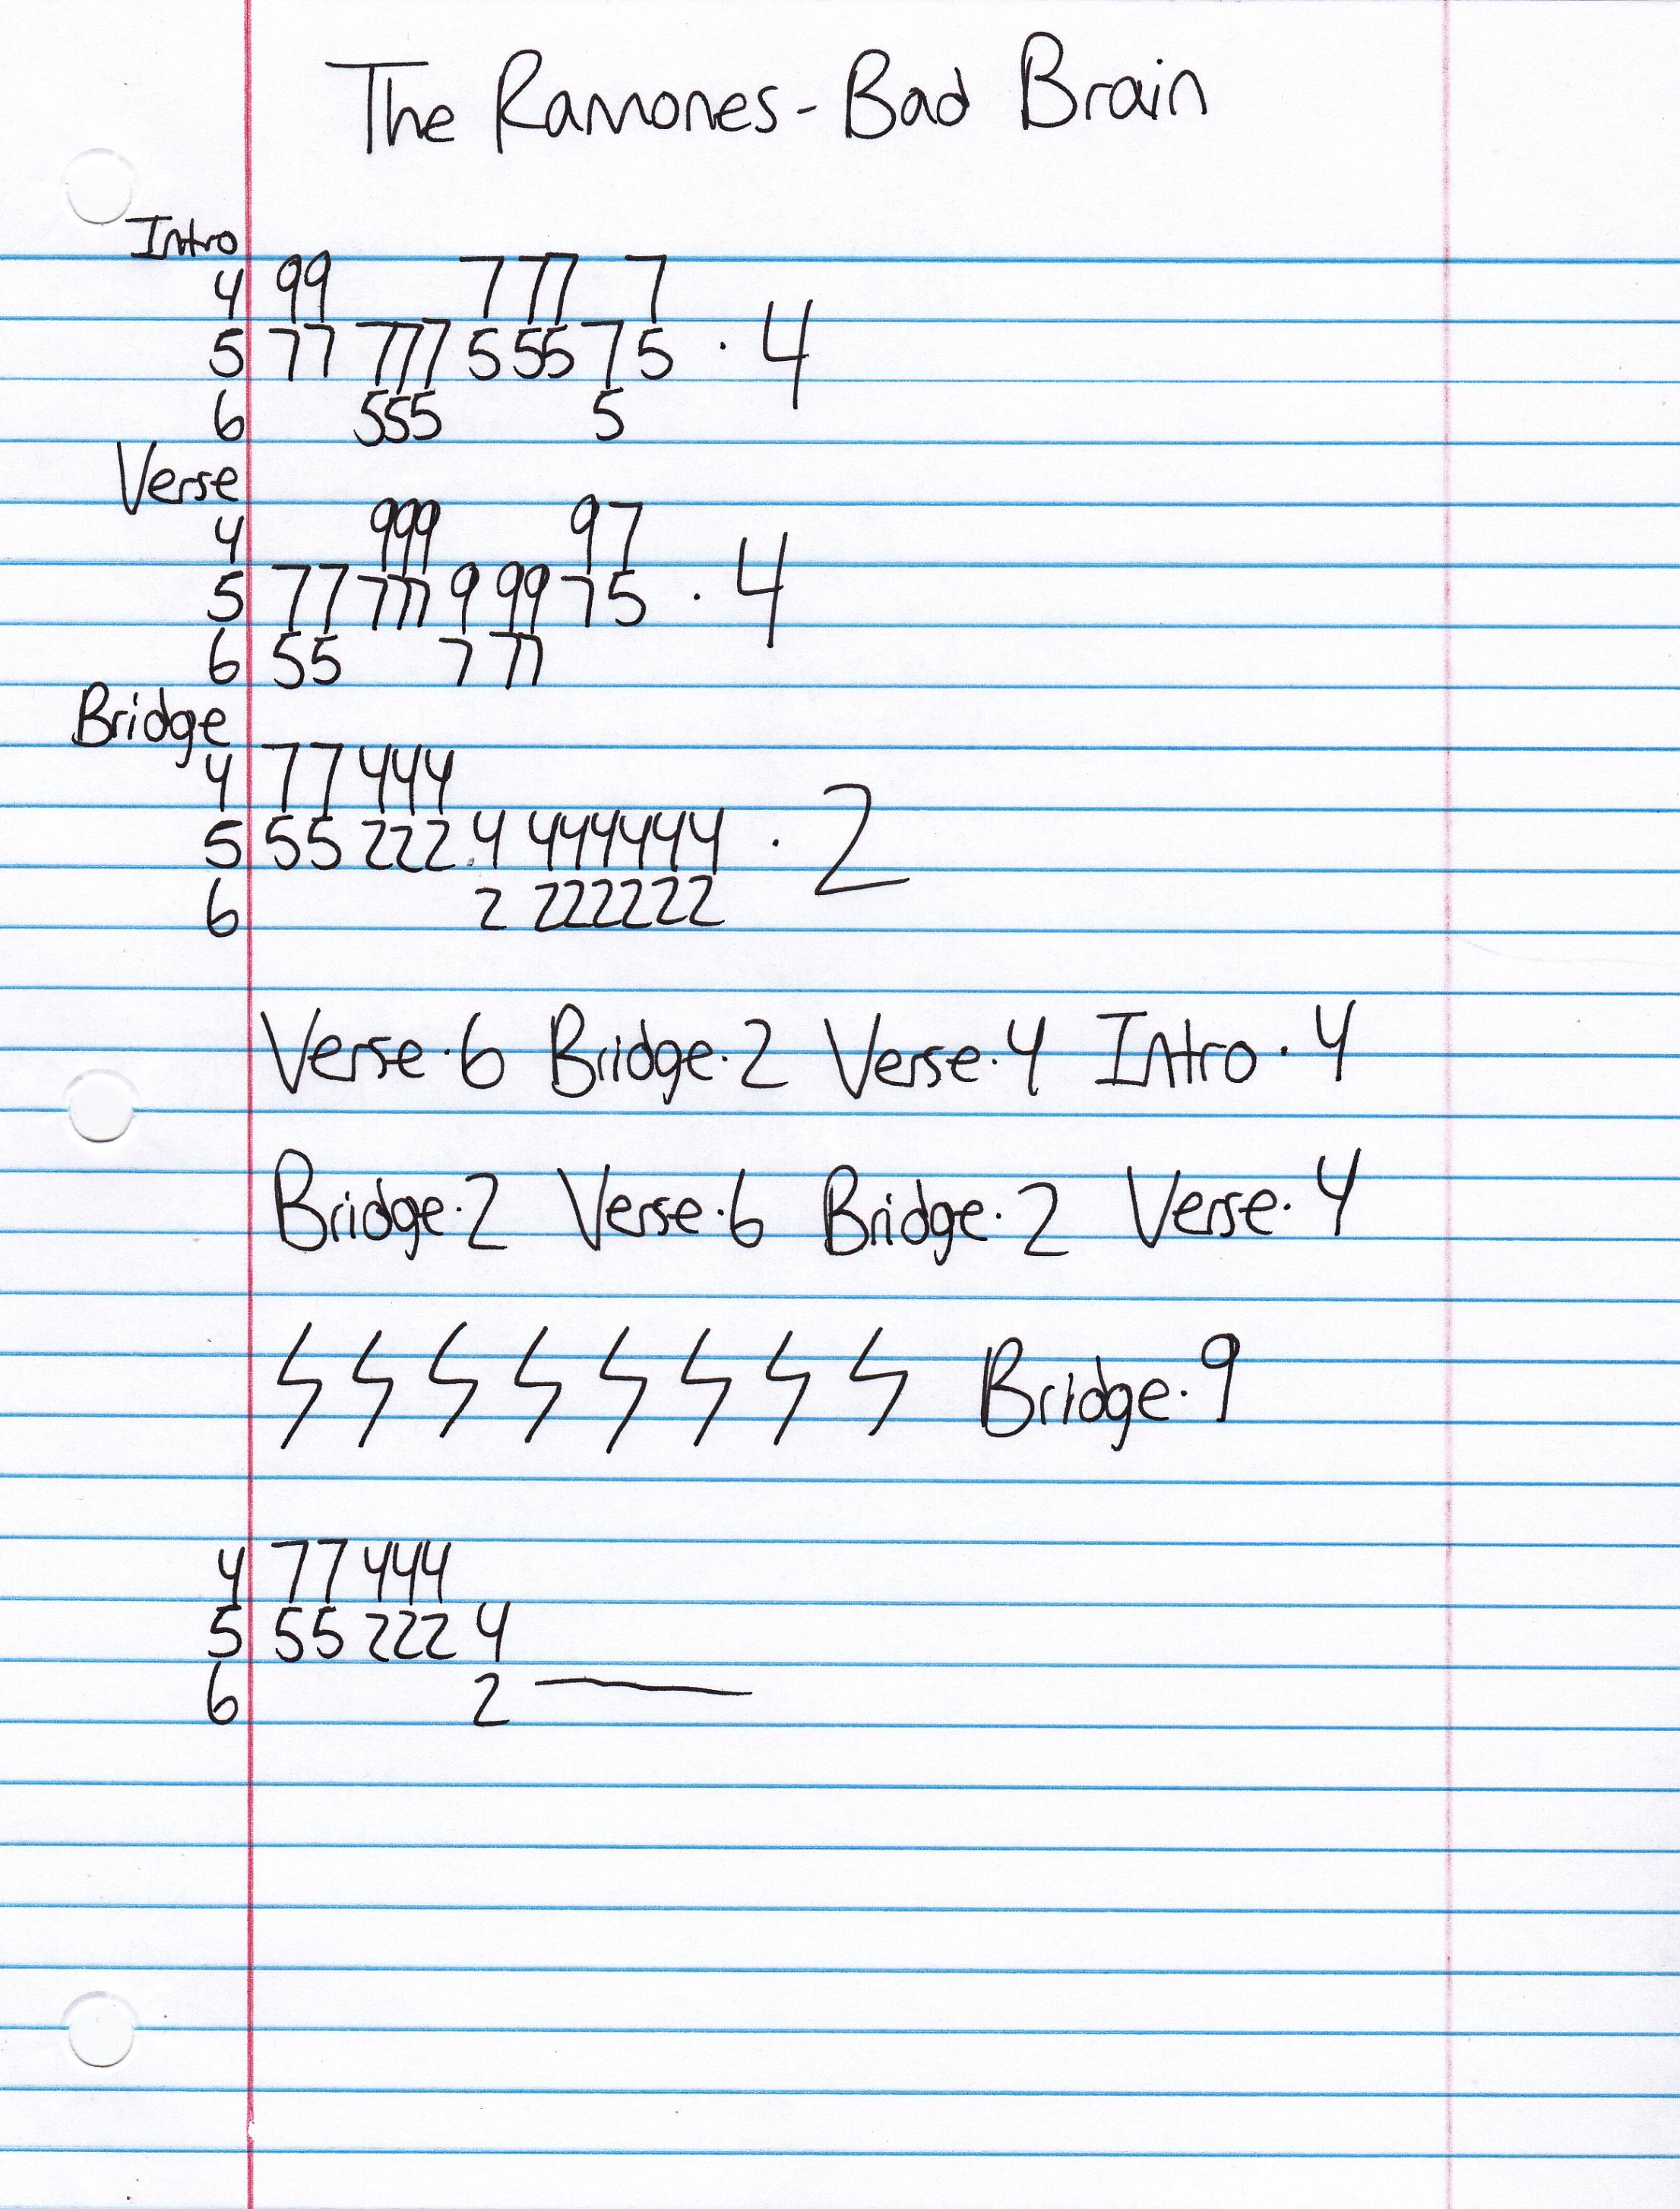 The Ramones - Bad Brain
Intro
4 99 7 77 7
5 77 777 5 55 7 5 · 4
6 555 5
Verse
4 999 9 7
5 77 777 9 99 7 5 · 4
6 55 7 77
Bridge
4 77 444
5 55 222 4 444444 · 2
6 2 222222
Verse·6 Bridge·2 Verse·4 Intro·4
Bridge·2 Verse·6 Bridge·2 Verse·4
Bridge·9
4 77 444
5 55 222 4
6 2 —